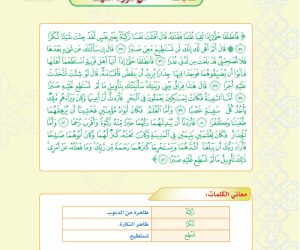 من سورة الكهف
فَانطَلَقَا حَتَّىٰ إِذَا لَقِيَا غُلَامًا فَقَتَلَهُ قَالَ أَقَتَلْتَ نَفْسًا زَكِيَّةً بِغَيْرِ نَفْسٍ لَّقَدْ جِئْتَ شَيْئًا نُّكْرًا
قَالَ أَلَمْ أَقُل لَّكَ إِنَّكَ لَن تَسْتَطِيعَ مَعِيَ صَبْرًا قَالَ إِن سَأَلْتُكَ عَن شَيْءٍ بَعْدَهَا
فَلَا تُصَاحِبْنِي قَدْ بَلَغْتَ مِن لَّدُنِّي عُذْرًا فَانطَلَقَا حَتَّىٰ إِذَا أَتَيَا أَهْلَ قَرْيَةٍ اسْتَطْعَمَا أَهْلَهَا
فَأَبَوْا أَن يُضَيِّفُوهُمَا فَوَجَدَا فِيهَا جِدَارًا يُرِيدُ أَن يَنقَضَّ فَأَقَامَهُ قَالَ لَوْ شِئْتَ لَاتَّخَذْتَ
عَلَيْهِ أَجْرًا قَالَ هَٰذَا فِرَاقُ بَيْنِي وَبَيْنِكَ سَأُنَبِّئُكَ بِتَأْوِيلِ مَا لَمْ تَسْتَطِع عَّلَيْهِ صَبْرًا
أَمَّا السَّفِينَةُ فَكَانَتْ لِمَسَاكِينَ يَعْمَلُونَ فِي الْبَحْرِ فَأَرَدتُّ أَنْ أَعِيبَهَا وَكَانَ وَرَاءَهُم مَّلِكٌ
يَأْخُذُ كُلَّ سَفِينَةٍ غَصْبًا وَأَمَّا الْغُلَامُ فَكَانَ أَبَوَاهُ مُؤْمِنَيْنِ فَخَشِينَا أَن يُرْهِقَهُمَا
طُغْيَانًا وَكُفْرًا فَأَرَدْنَا أَن يُبْدِلَهُمَا رَبُّهُمَا خَيْرًا مِّنْهُ زَكَاةً وَأَقْرَبَ رُحْمًا وَأَمَّا
الْجِدَارُ فَكَانَ لِغُلَامَيْنِ يَتِيمَيْنِ فِي الْمَدِينَةِ وَكَانَ تَحْتَهُ كَنزٌ لَّهُمَا وَكَانَ أَبُوهُمَا صَالِحًا
فَأَرَادَ رَبُّكَ أَن يَبْلُغَا أَشُدَّهُمَا وَيَسْتَخْرِجَا كَنزَهُمَا رَحْمَةً مِّن رَّبِّكَ وَمَا فَعَلْتُهُ عَنْ أَمْرِي
ذَٰلِكَ تَأْوِيلُ مَا لَمْ تَسْطِع عَّلَيْهِ صَبْرًا
معاني الكلمات:
زَكِيَّةً طاهرة من الذنوب.
نُكْرًا ظاهر النكارة.
تَسْطِع تستطيع.